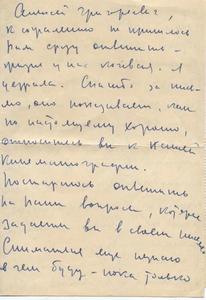 Алексей Григорьевич,
к сожалению не пришлось
Вам сразу ответить –
у нас я
уезжала. Спасибо за пись-
мо, оно показывает, как
по настоящему хорошо,
относитесь вы к нашей
кинематографии.
Постараюсь ответить
на ваши вопросы, которые
задали вы в своем письме
Сниматься еще
в чем буду – пока только